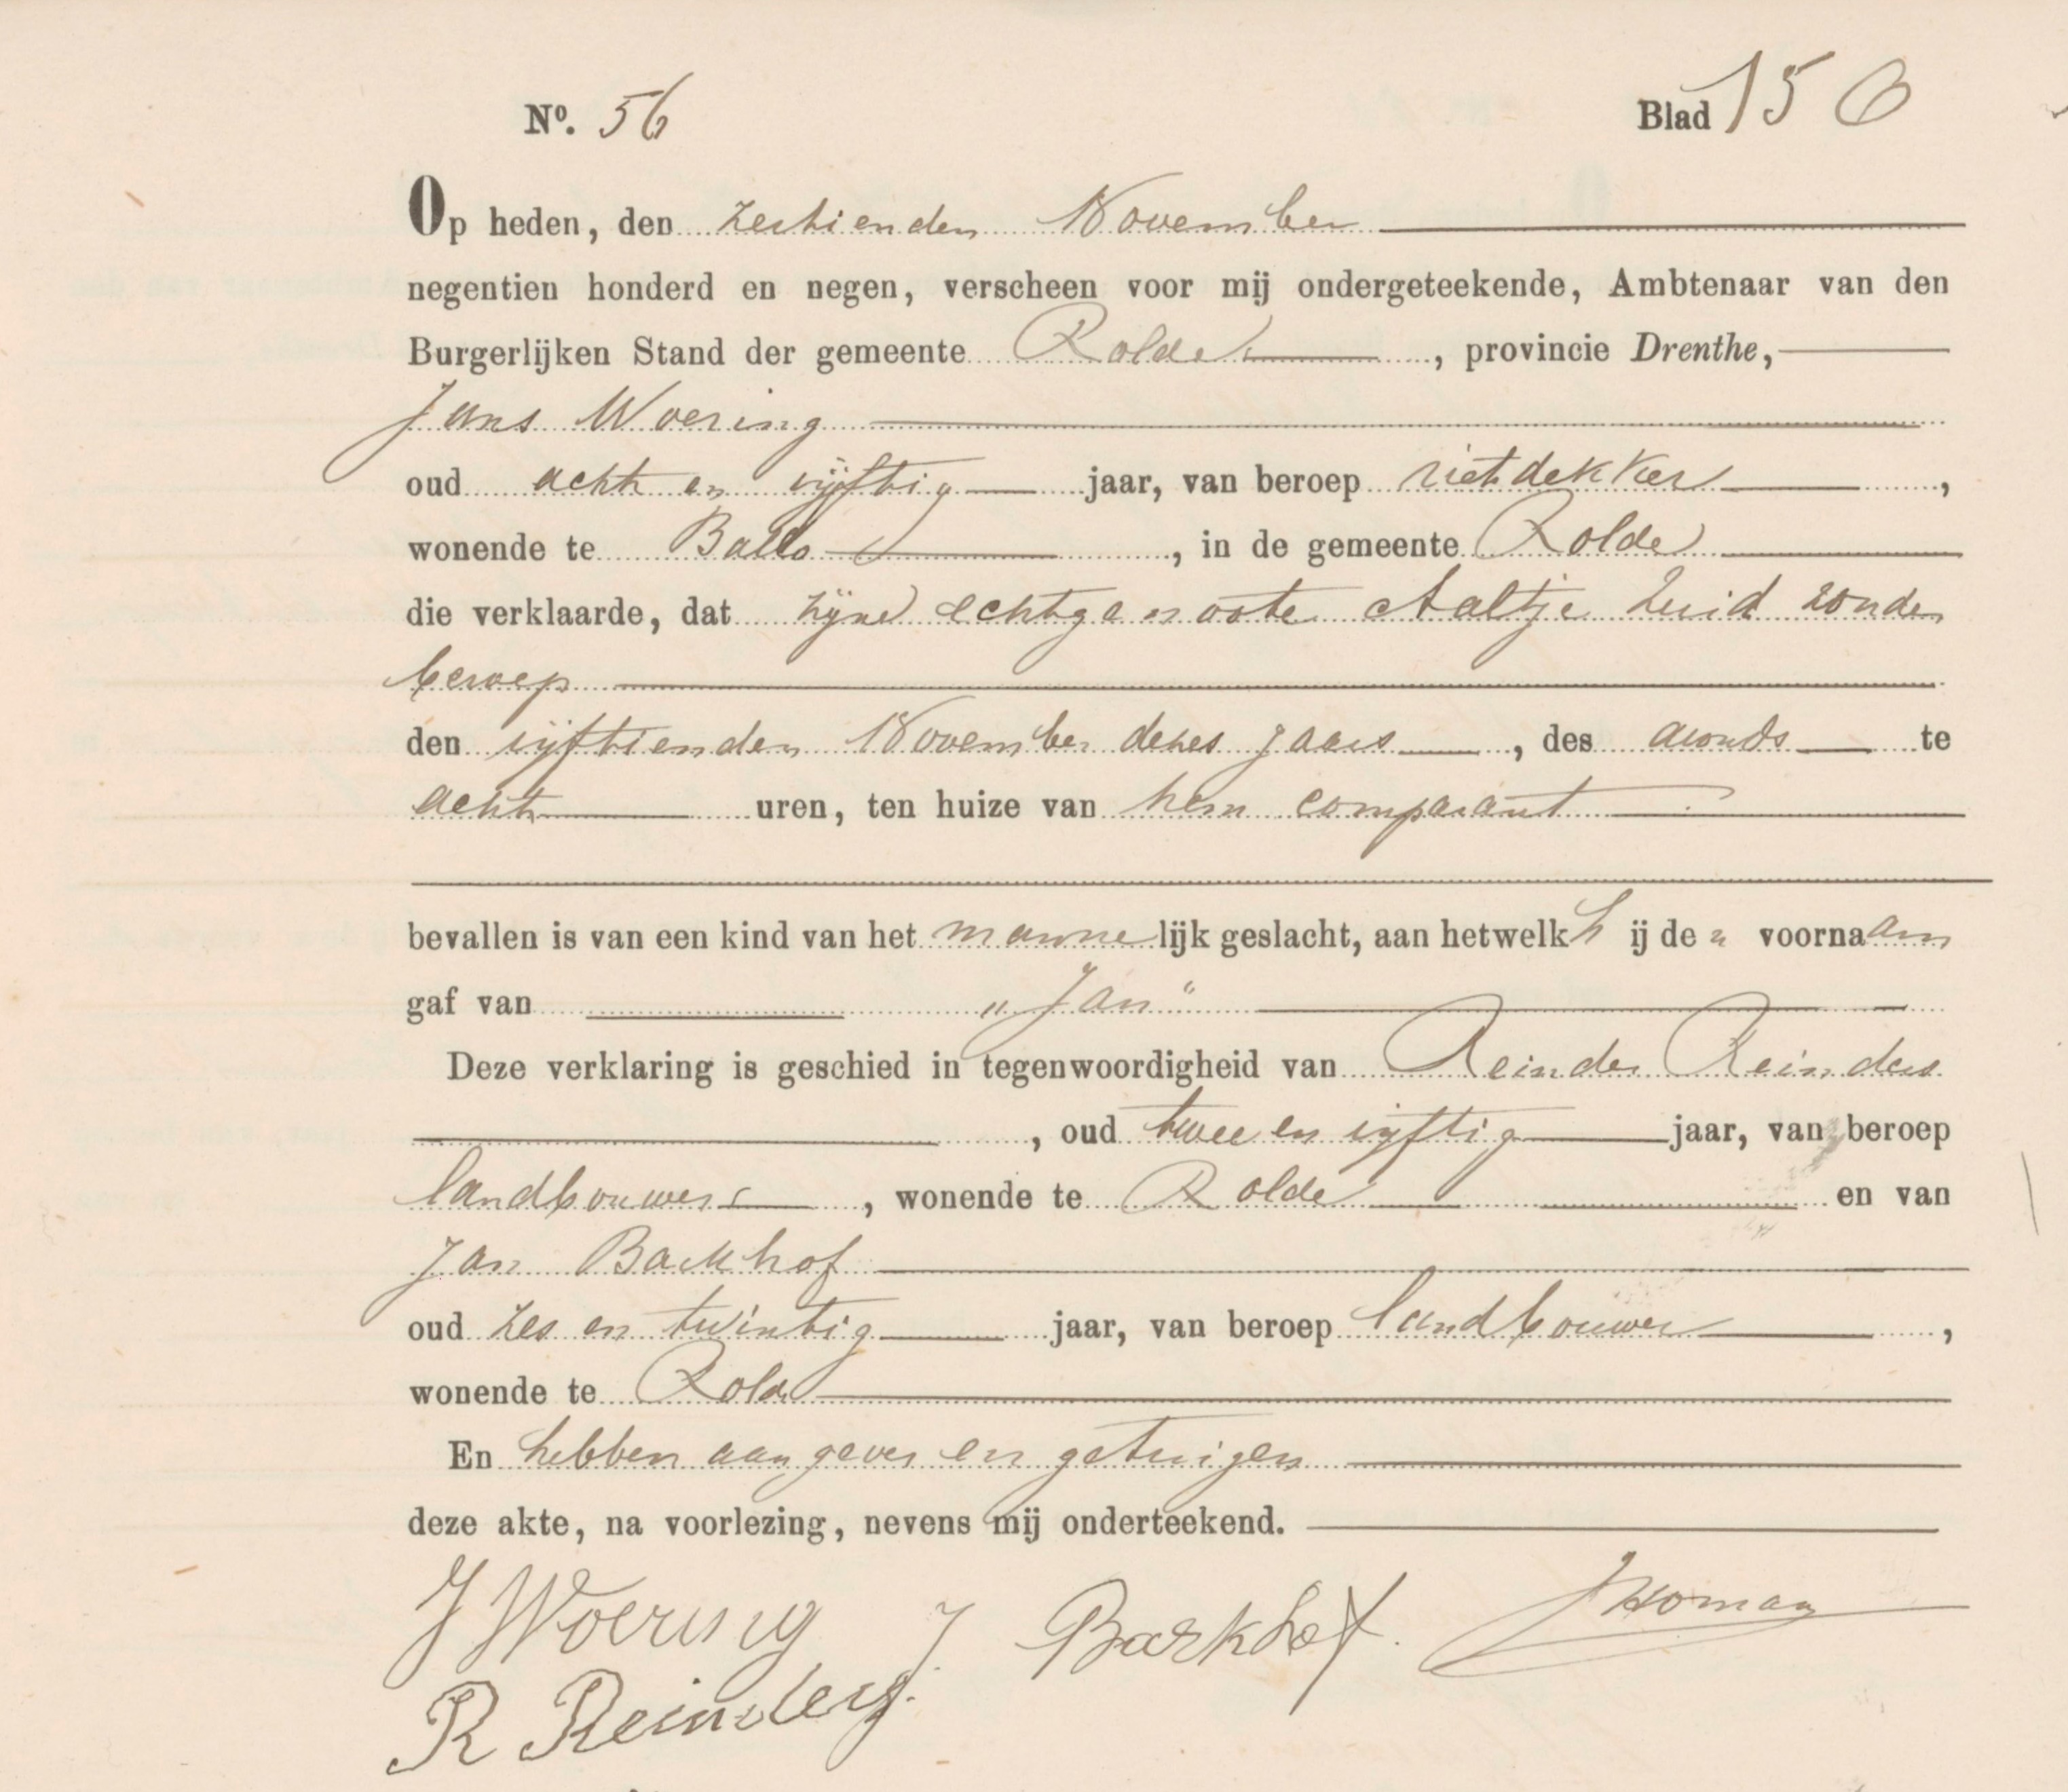 No. 56 Blad 150
Op heden, den zestienden November
negentien honderd en negen, verscheen voor mij ondergeteekende, Ambtenaar van den
Burgerlijken Stand der gemeente Rolde, provincie Drenthe,
Jans Woering
oud acht en vijftig jaar, van beroep rietdekker,
wonende te Ballo, in de gemeente Rolde
die verklaarde, dat zijne echtgenoote Aaltje Zuid zonder
beroep
den vijftienden November dezes jaars, des avonds te
acht uren, ten huize van hem comparant
bevallen is van een kind van het mannelijk geslacht, aan hetwelk hij de n voornaam
gaf van „Jan"
Deze verklaring is geschied in tegenwoordigheid van Reinder Reinders
, oud twee en vijftig jaar, van beroep
landbouwer, wonende te Rolde en van
Jan Barkhof
oud zes en twintig jaar, van beroep landbouwer,
wonende te Rolde
En hebben aangever en getuigen
deze akte, na voorlezing, nevens mij onderteekend.
J Woering J. Barkhof. JHoman
R Reinders.